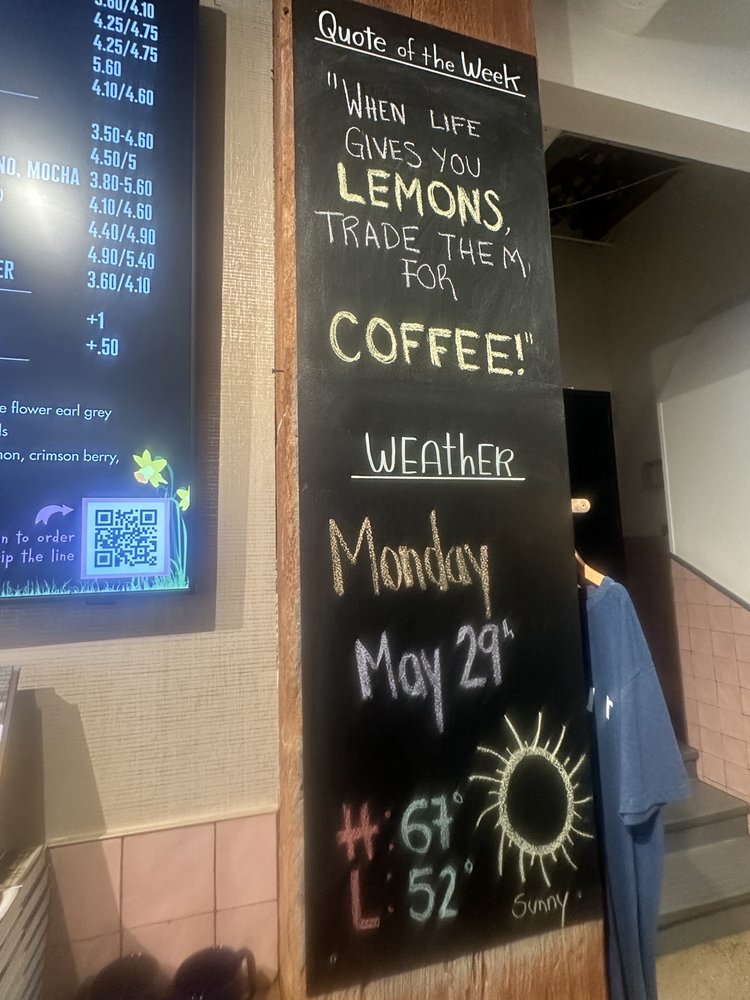 3.60/4.10
4.25/4.75
4.25/4.75
5.60
4.10/4.60
3.50-4.60
4.50/5
NO, MOCHA 3.80-5.60
4.10/4.60
4.40/4.90
4.90/5.40
ER 3.60/4.10
+1
+.50
e flower earl grey
ls
non, crimson berry,
n to order
ip the line
Quote of the Week
"WHEN LIFE
GIVES YOU
LEMONS,
TRADE THEM,
FOR
COFFEE!"
WEAthER
Monday
May 29th
H: 67°
L: 52°
Sunny.